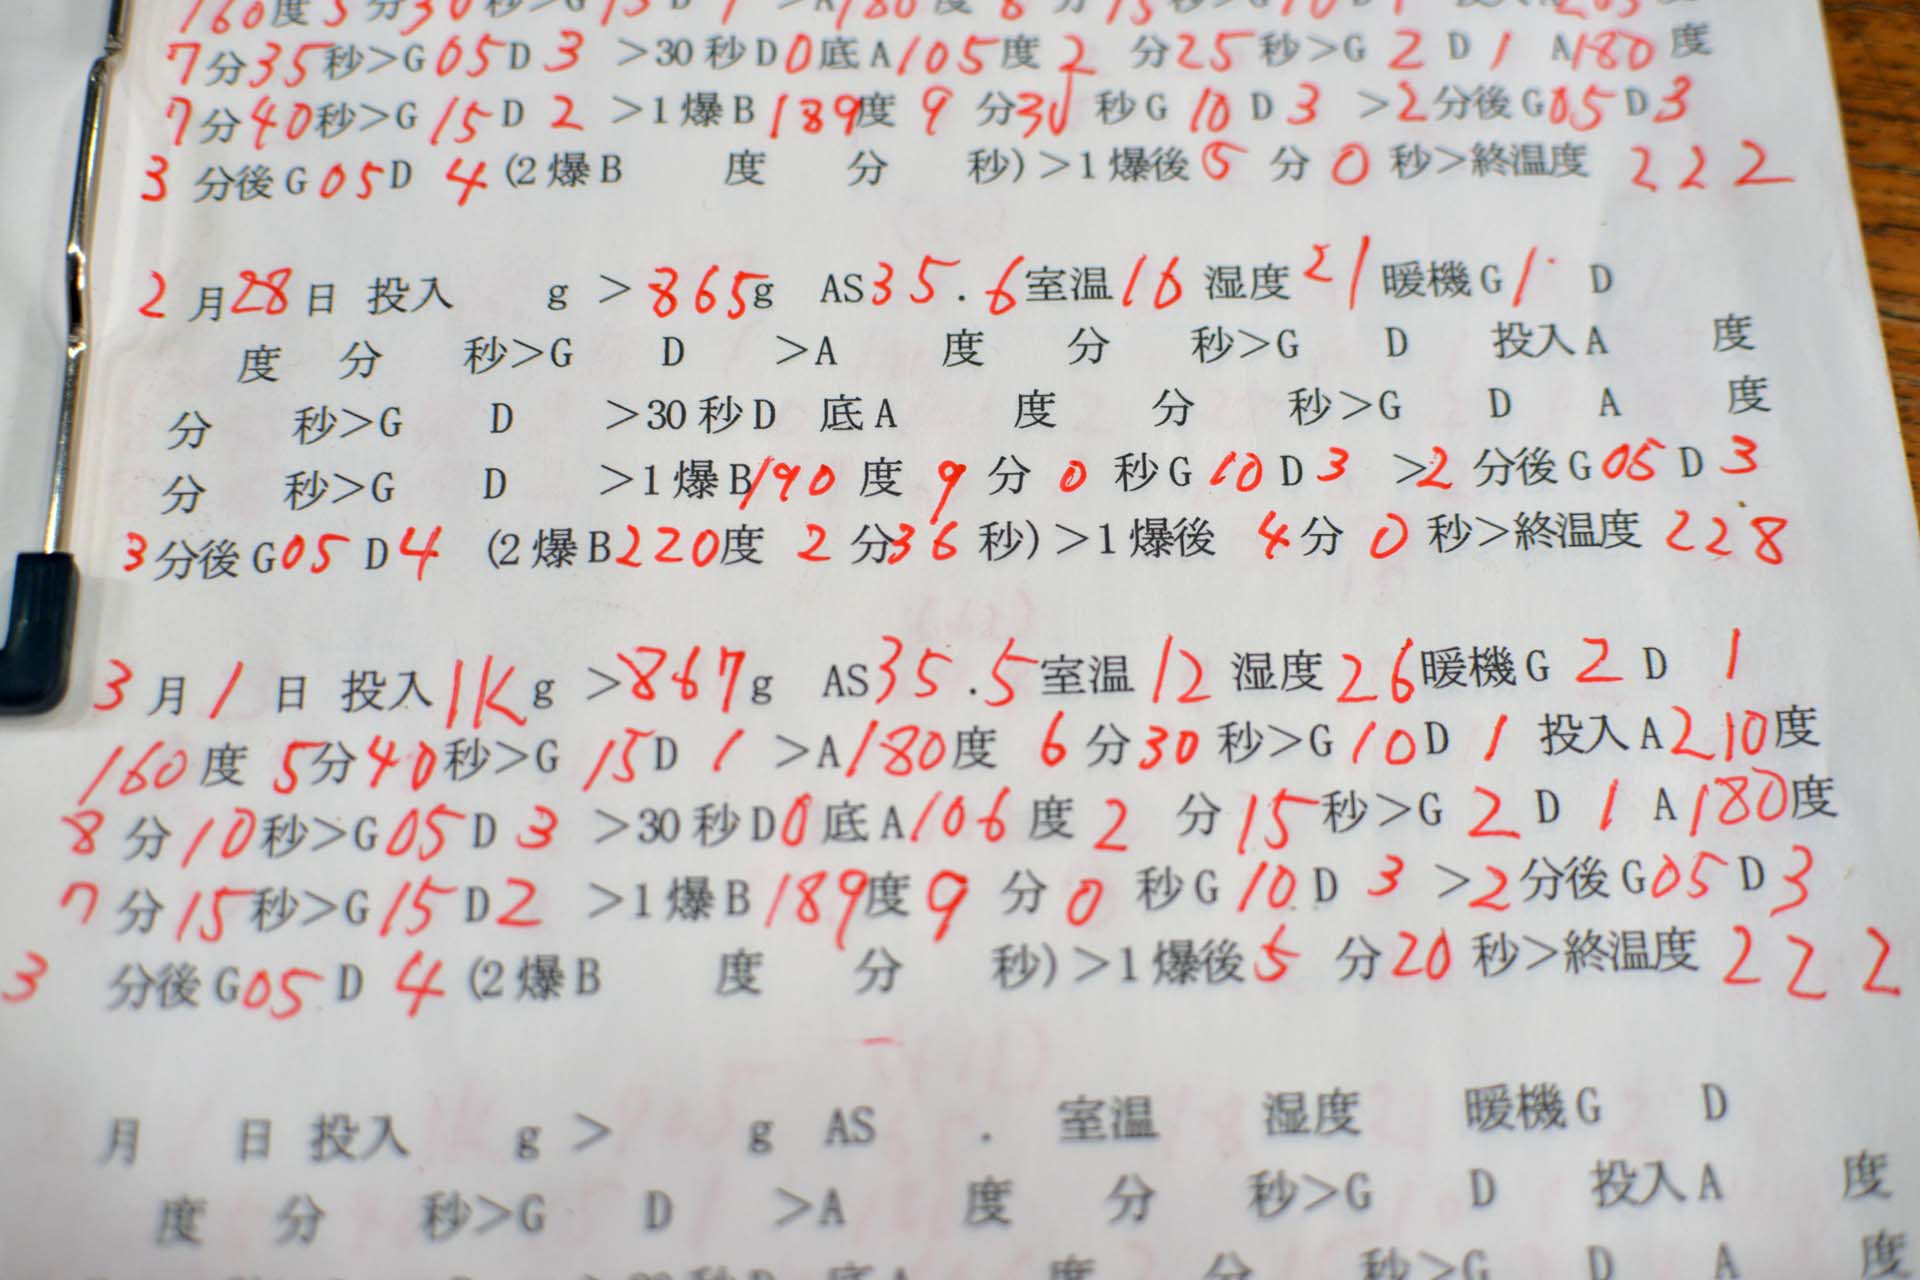 160度5分30秒>G15D1>A180度8分15秒>G10D1投入A205度
7分35秒>G05D3 >30秒D0底A105度2分25秒>G2D1 A180度
7分40秒>G15D2 >1爆B189度9分30秒G10D3 >2分後G05D3
3分後G05D4(2爆B 度 分 秒)>1爆後5分0秒>終温度222
2月28日 投入 g >865g AS35.6室温16湿度21暖機G1 D
度 分 秒>G D >A 度 分 秒>G D 投入A 度
分 秒>G D >30秒D 底A 度 分 秒>G D A 度
分 秒>G D >1爆B190度9分0秒G10D3 >2分後G05D3
3分後G05D4(2爆B220度2分36秒)>1爆後4分0秒>終温度228
3月1日 投入1Kg >867g AS35.5室温12湿度26暖機G2D1
160度5分40秒>G15D1 >A180度6分30秒>G10D1 投入A210度
8分10秒>G05D3 >30秒D0底A106度2分15秒>G2D1 A180度
7分15秒>G15D2 >1爆B189度9分0秒G10D3 >2分後G05D3
3分後G05D4(2爆B 度 分 秒)>1爆後5分20秒>終温度222
月 日 投入 g > g AS . 室温 湿度 暖機G D
度 分 秒>G D >A 度 分 秒>G D 投入A 度
>30秒D 底A 度 分 秒>G D A 度